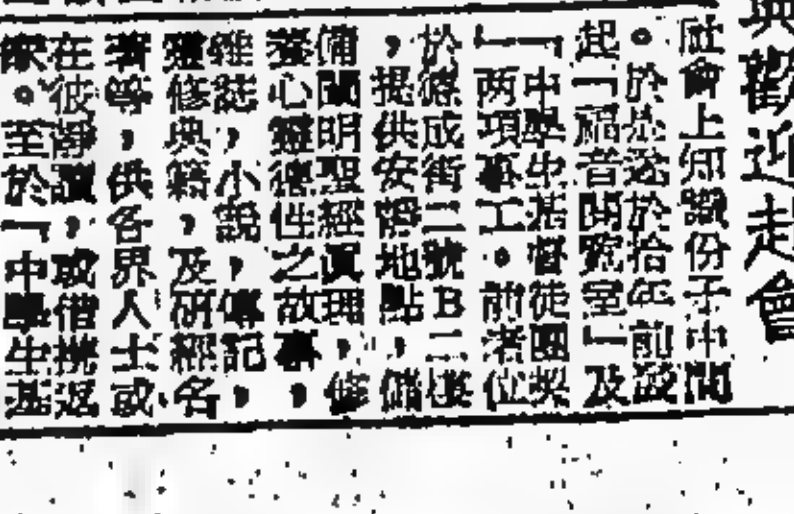 與歡迎赴會
社會上知識份子中間
。於是遂於拾年前設
起「福音閱覽室」及
「中學生基督徒團契
」两項事工。前者位
於德成街二號B二樓
，提供安靜地點，備
備闡明聖經眞理，修
養心靈德性之故事，
雜誌，小說，傳記，
靈修典籍，及研經名
著等，供各界人士或
在彼靜讀，或借携返
家。至於「中學生基